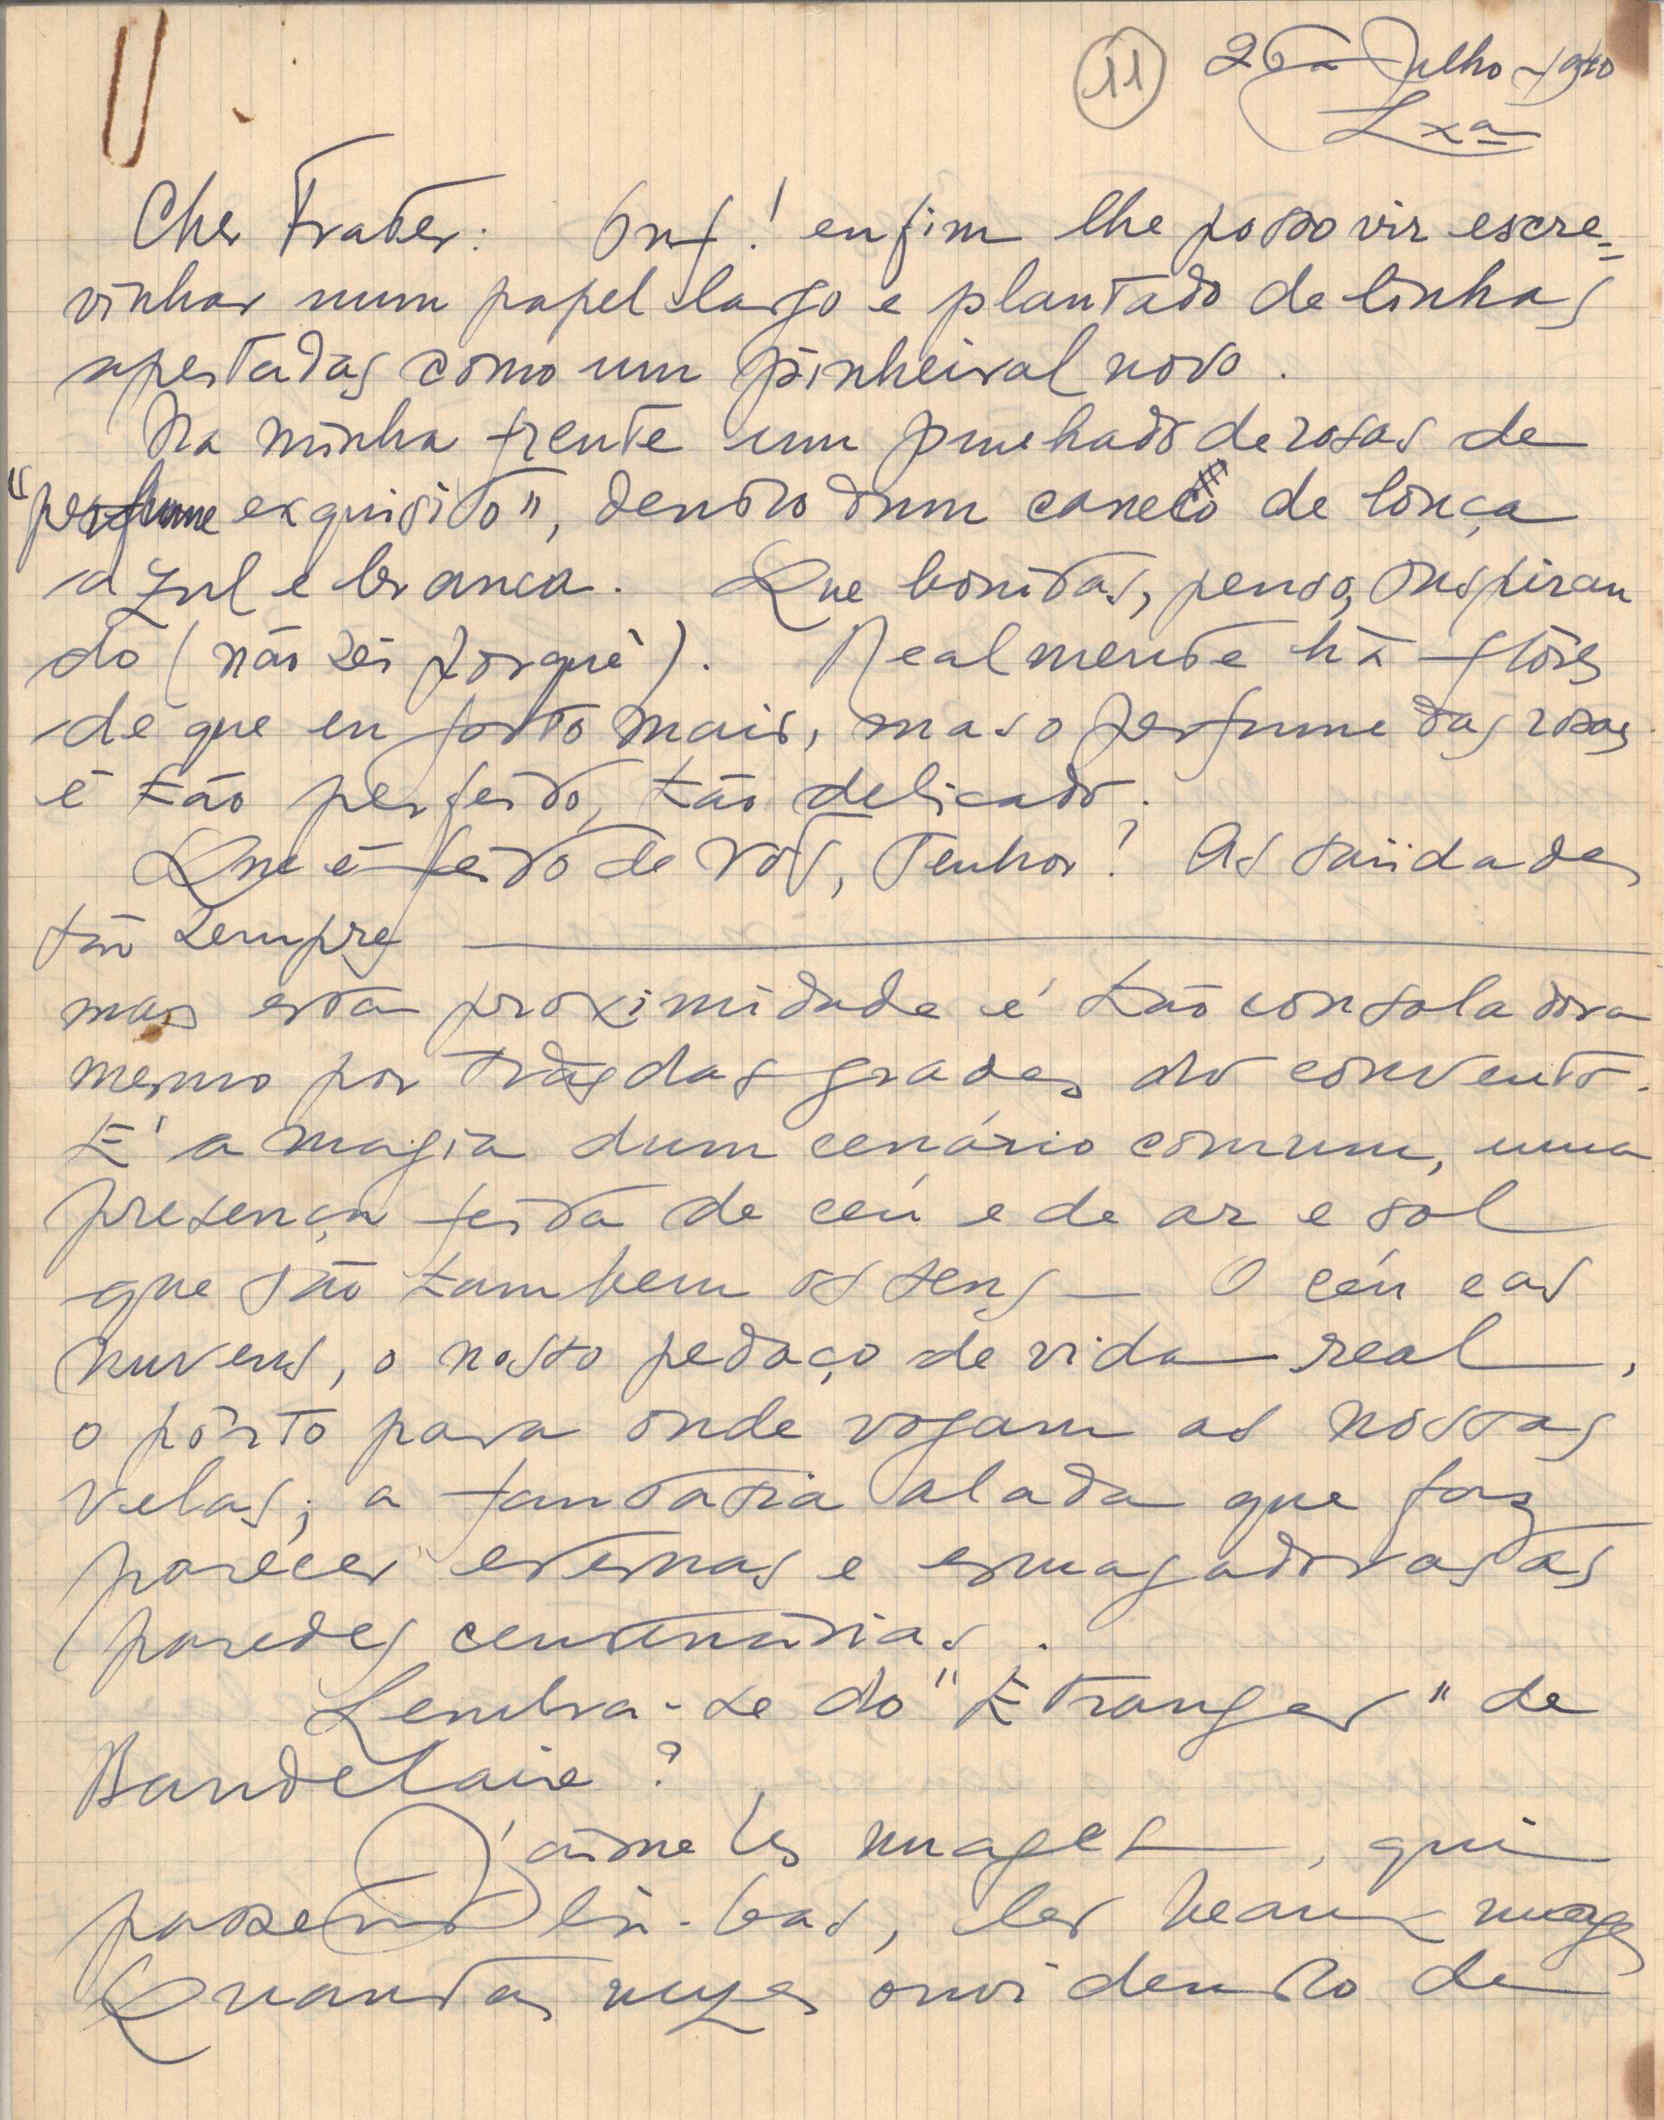 11 26 Julho - 1940
Lxa
Cher Frater: Ouf! enfim lhe posso vir escre=
vinhar num papel largo e plantado de linhas
apertadas como um pinheiral novo.
Na minha frente um punhado de rosas de
"perfume exquisito", dentro dum caneco de louça
azul e branca. Que bonitas, penso, suspiran
do (não sei porquê). Realmente há flôres
de que eu gosto mais, mas o perfume das rosas
é tão perfeito, tão delicado.
Que é feito de vós, Senhor? As saüdades
são sempre
mas esta proximidade é tão consoladora
mesmo por trás das grades do convento.
E' a magia dum cenário comum, uma
presença feita de céu e de ar e sol
que são tambem os seus — O céu e as
nuvens, o nosso pedaço de vida real,
o pôrto para onde vogam as nossas
velas; a fantasia alada que faz
parecer eternas e esmagadoras as
paredes centenárias.
Lembra-se do "Etranger" de
Baudelaire?
J'aime les nuages, qui
passent là-bas, les beaux nuages
Quantas vezes ouvi dentro de